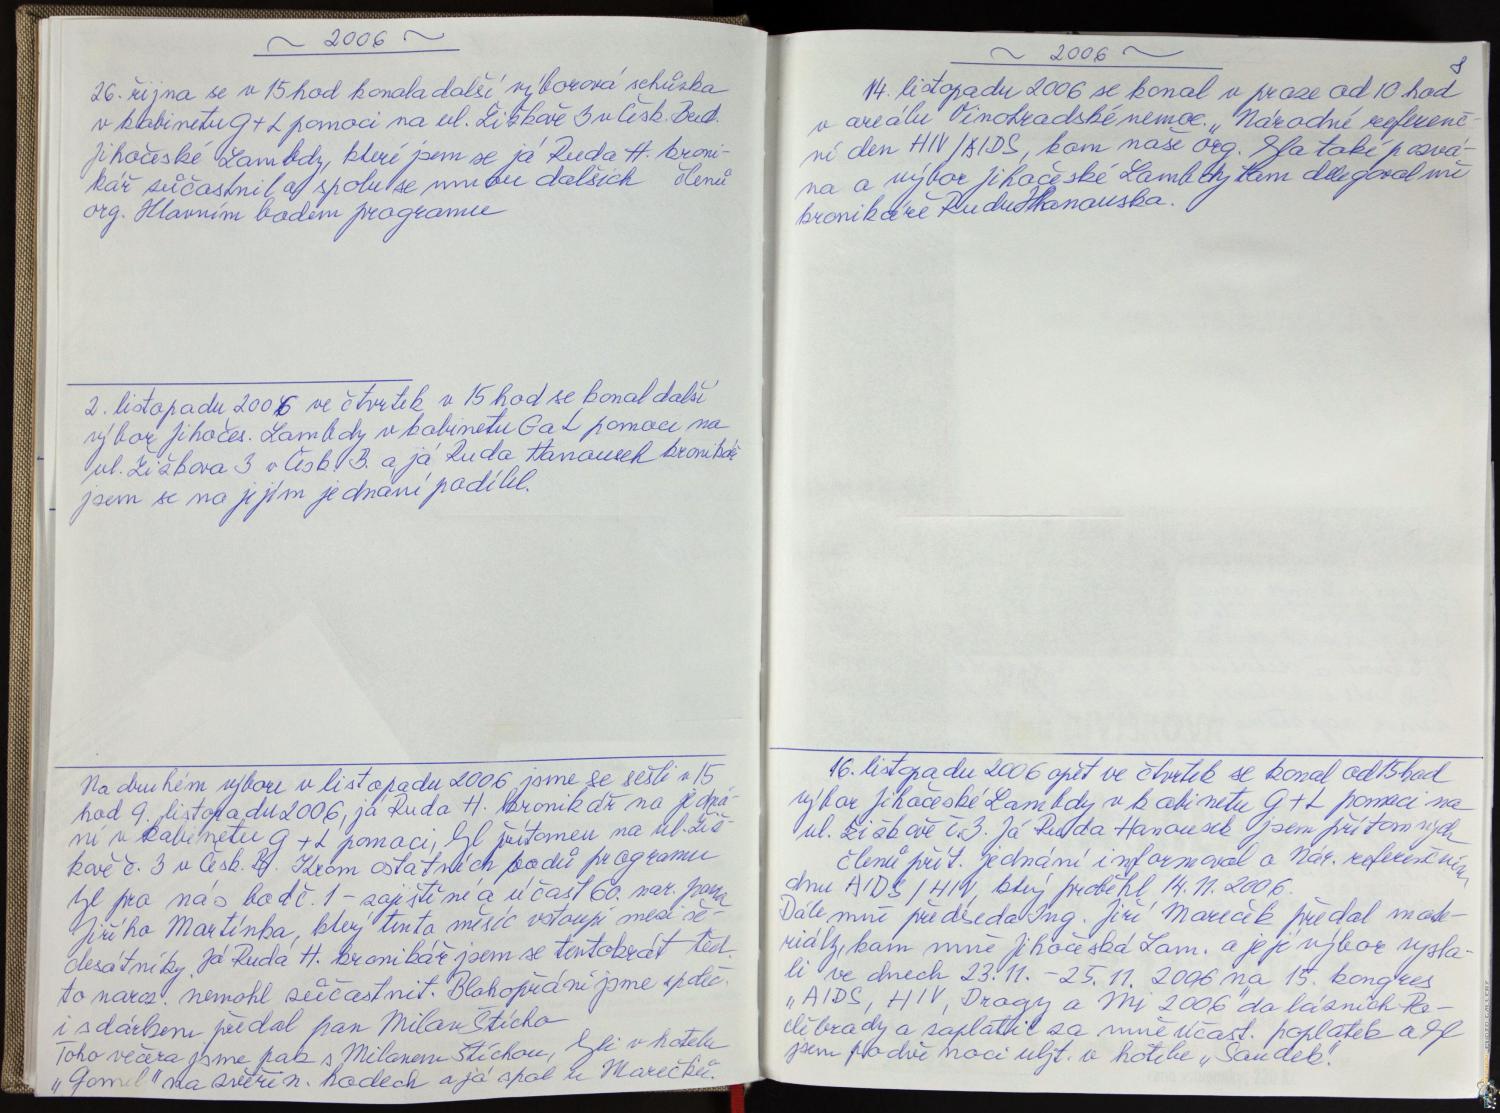 ~ 2006 ~
26. října se v 15 hod konala další výborová schůzka
v kabinetu G+L pomoci na ul. Žižkově 3 v Česk. Bud.
Jihočeské Lambdy, které jsem se já Ruda H. kroni-
kář súčastnil a spolu se mnou dalších členů
org. Hlavním bodem programu
2. listopadu 2006 ve čtvrtek v 15 hod se konal další
výbor Jihočes. Lambdy v kabinetu G a L pomoci na
ul. Žižkova 3 v Česk. B. a já Ruda Hanousek kronikář
jsem se na jejím jednání podílel.
Na druhém výboru v listopadu 2006 jsme se sešli v 15
hod 9. listopadu 2006, já Ruda H. kronikář na jedná-
ní v kabinetu G+L pomoci, byl přítomen na ul. Žiž-
kově č. 3 v Česk. B. Krom ostatních bodů programu
byl pro nás bod č. 1 - zajištění a účast 60. nar. pana
Jiřího Martínka, který tento měsíc vstoupí mezi še-
desátníky. Já Ruda H. kronikář jsem se tentokrát těch
to naroz. nemohl súčastnit. Blahopřání jsme společ.
i s dárkem předal pan Milan Šticho
Toho večera jsme pak s Milanem Štichou, byli v hotelu
"Gomel" na zvěřin. hodech a já spal u Marečků.
~ 2006 ~
8
14. listopadu 2006 se konal v praze od 10 hod
v areálu Vinohradské nemoc. "Národné referenč-
ní den HIV/AIDS, kam naše org. byla také pozvá-
na a výbor Jihočeské Lambdy tam delegoval mě
kronikáře Rudu Hanouska.
16. listopadu 2006 opět ve čtvrtek se konal od 15 hod
výbor Jihočeské Lambdy v kabinetu G+L pomoci na
ul. Žižkově č. 3. Já Ruda Hanousek jsem přítomných
členů přít. jednání informoval o Nár. referenčním
dnu AIDS/HIV, který proběhl 14. 11. 2006.
Dále mně předseda Ing. Jiří Mareček předal mate-
riály kam mně Jihočeská Lam. a její výbor vysla-
li ve dnech 23.11. - 25.11. 2006 na 15. kongres
"AIDS, HIV, Drogy a My 2006" do lázních Po-
děbrady a zaplatit za mně účast. poplatek a byl
jsem po dvě noci ubyt. v hotelu "Soudek".